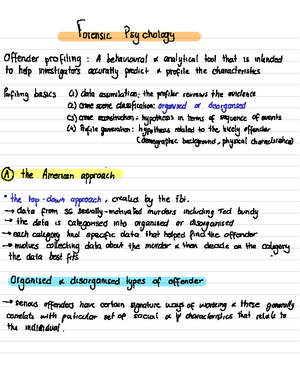 Forensic Psychology
Offender profiling : A behavioural & analytical tool that is intended
to help investigators accuratly predict & profile the characteristics
Profiling basics (1) data assimilation; the profiler reviews the evidence
(2) crime scene classification: organised or disorganised
(3) crime reconstruction: hypothesis in terms of sequence of events
(4) Profile generation: hypothesis related to the likely offender
(demographic background, physical characteristics)
A the American approach
* the top-down approach, created by the fbi.
→ data from 36 sexually-motivated murders including Ted bundy
→ the data is categorised into organised or disorganised
→ each category had specific data that helped find the offender
→ involves collecting data about the murder & then decide on the category
the data best fits
Organised & disorganised types of offender
→ serious offenders have certain signature ways of working & these generally
correlate with paticular set of social & ψ characteristics that relate to
the individual.